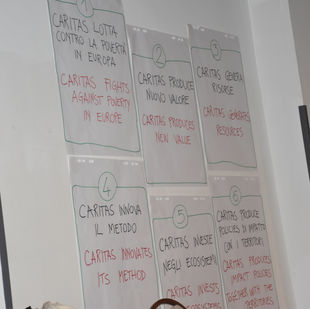 1
CARITAS LOTTA
CONTRO LA POVERTÀ
IN EUROPA
CARITAS FIGHTS
AGAINST POVERTY
IN EUROPE
2
CARITAS PRODUCE
NUOVO VALORE
CARITAS PRODUCES
NEW VALUE
3
CARITAS GENERA
RISORSE
CARITAS GENERATES
RESOURCES
4
CARITAS INNOVA
IL METODO
CARITAS INNOVATES
ITS METHOD
5
CARITAS INVESTE
NEGLI ECOSISTEMI
CARITAS INVESTS
ECOSYSTEMS
6
CARITAS PRODUCE
POLICIES DI IMPATTO
CON I TERRITORI
CARITAS PRODUCES
IMPACT POLICIES
TOGETHER WITH THE
TERRITORIES